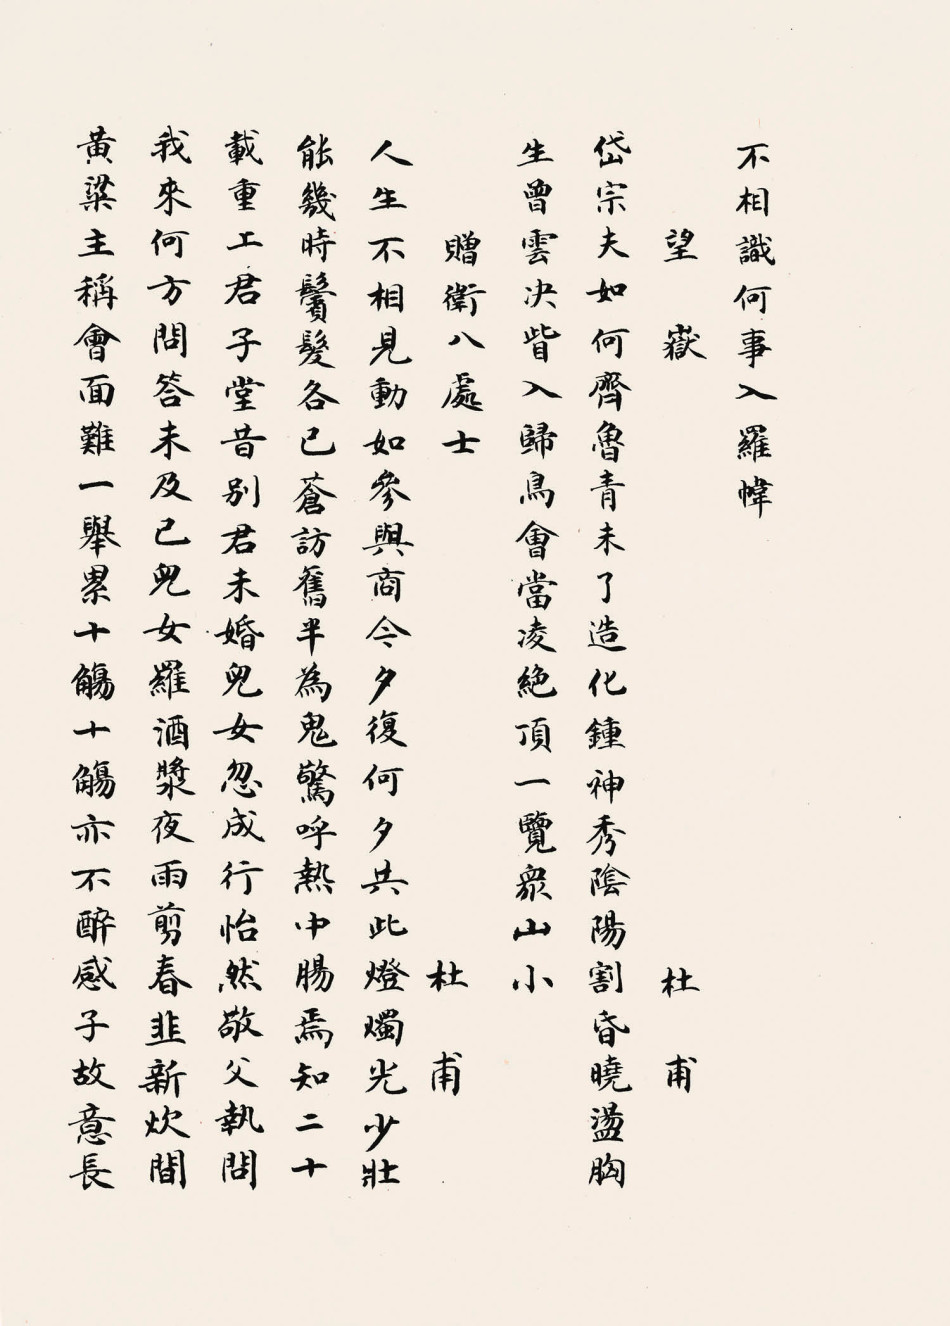 不相識何事入羅幃
望嶽 杜甫
岱宗夫如何齊魯青未了造化鍾神秀陰陽割昏曉盪胸
生曾雲決眥入歸鳥會當凌絕頂一覽衆山小
贈衛八處士 杜甫
人生不相見動如參與商今夕復何夕共此燈燭光少壯
能幾時鬢髮各已蒼訪舊半為鬼驚呼熱中腸焉知二十
載重上君子堂昔別君未婚兒女忽成行怡然敬父執問
我來何方問答未及已兒女羅酒漿夜雨剪春韭新炊間
黃粱主稱會面難一舉累十觴十觴亦不醉感子故意長